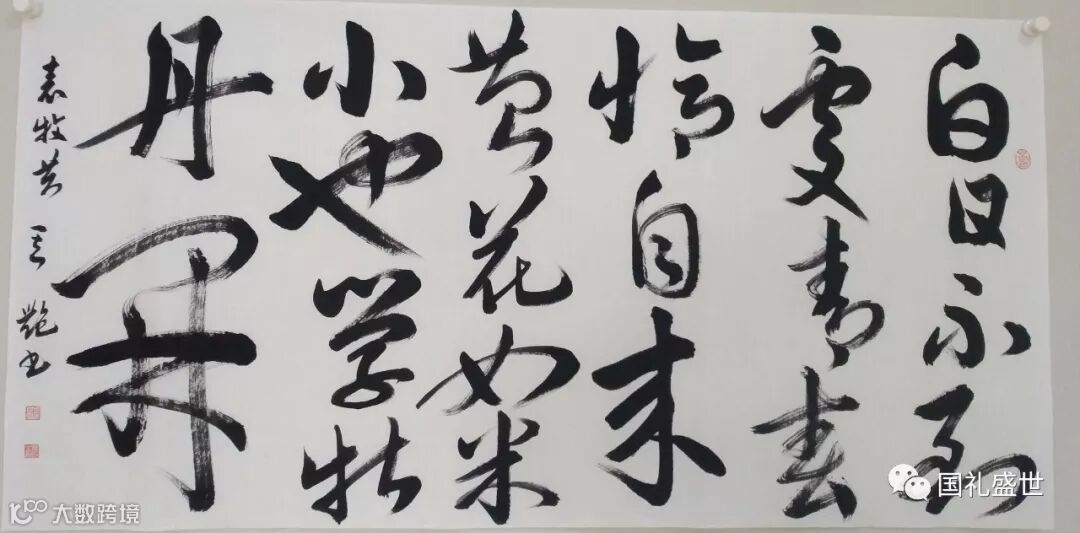 白日不到
處青春
恰自来
苔花如米
小也学牡
丹開
袁牧苔 艷书
国礼盛世
大数跨境